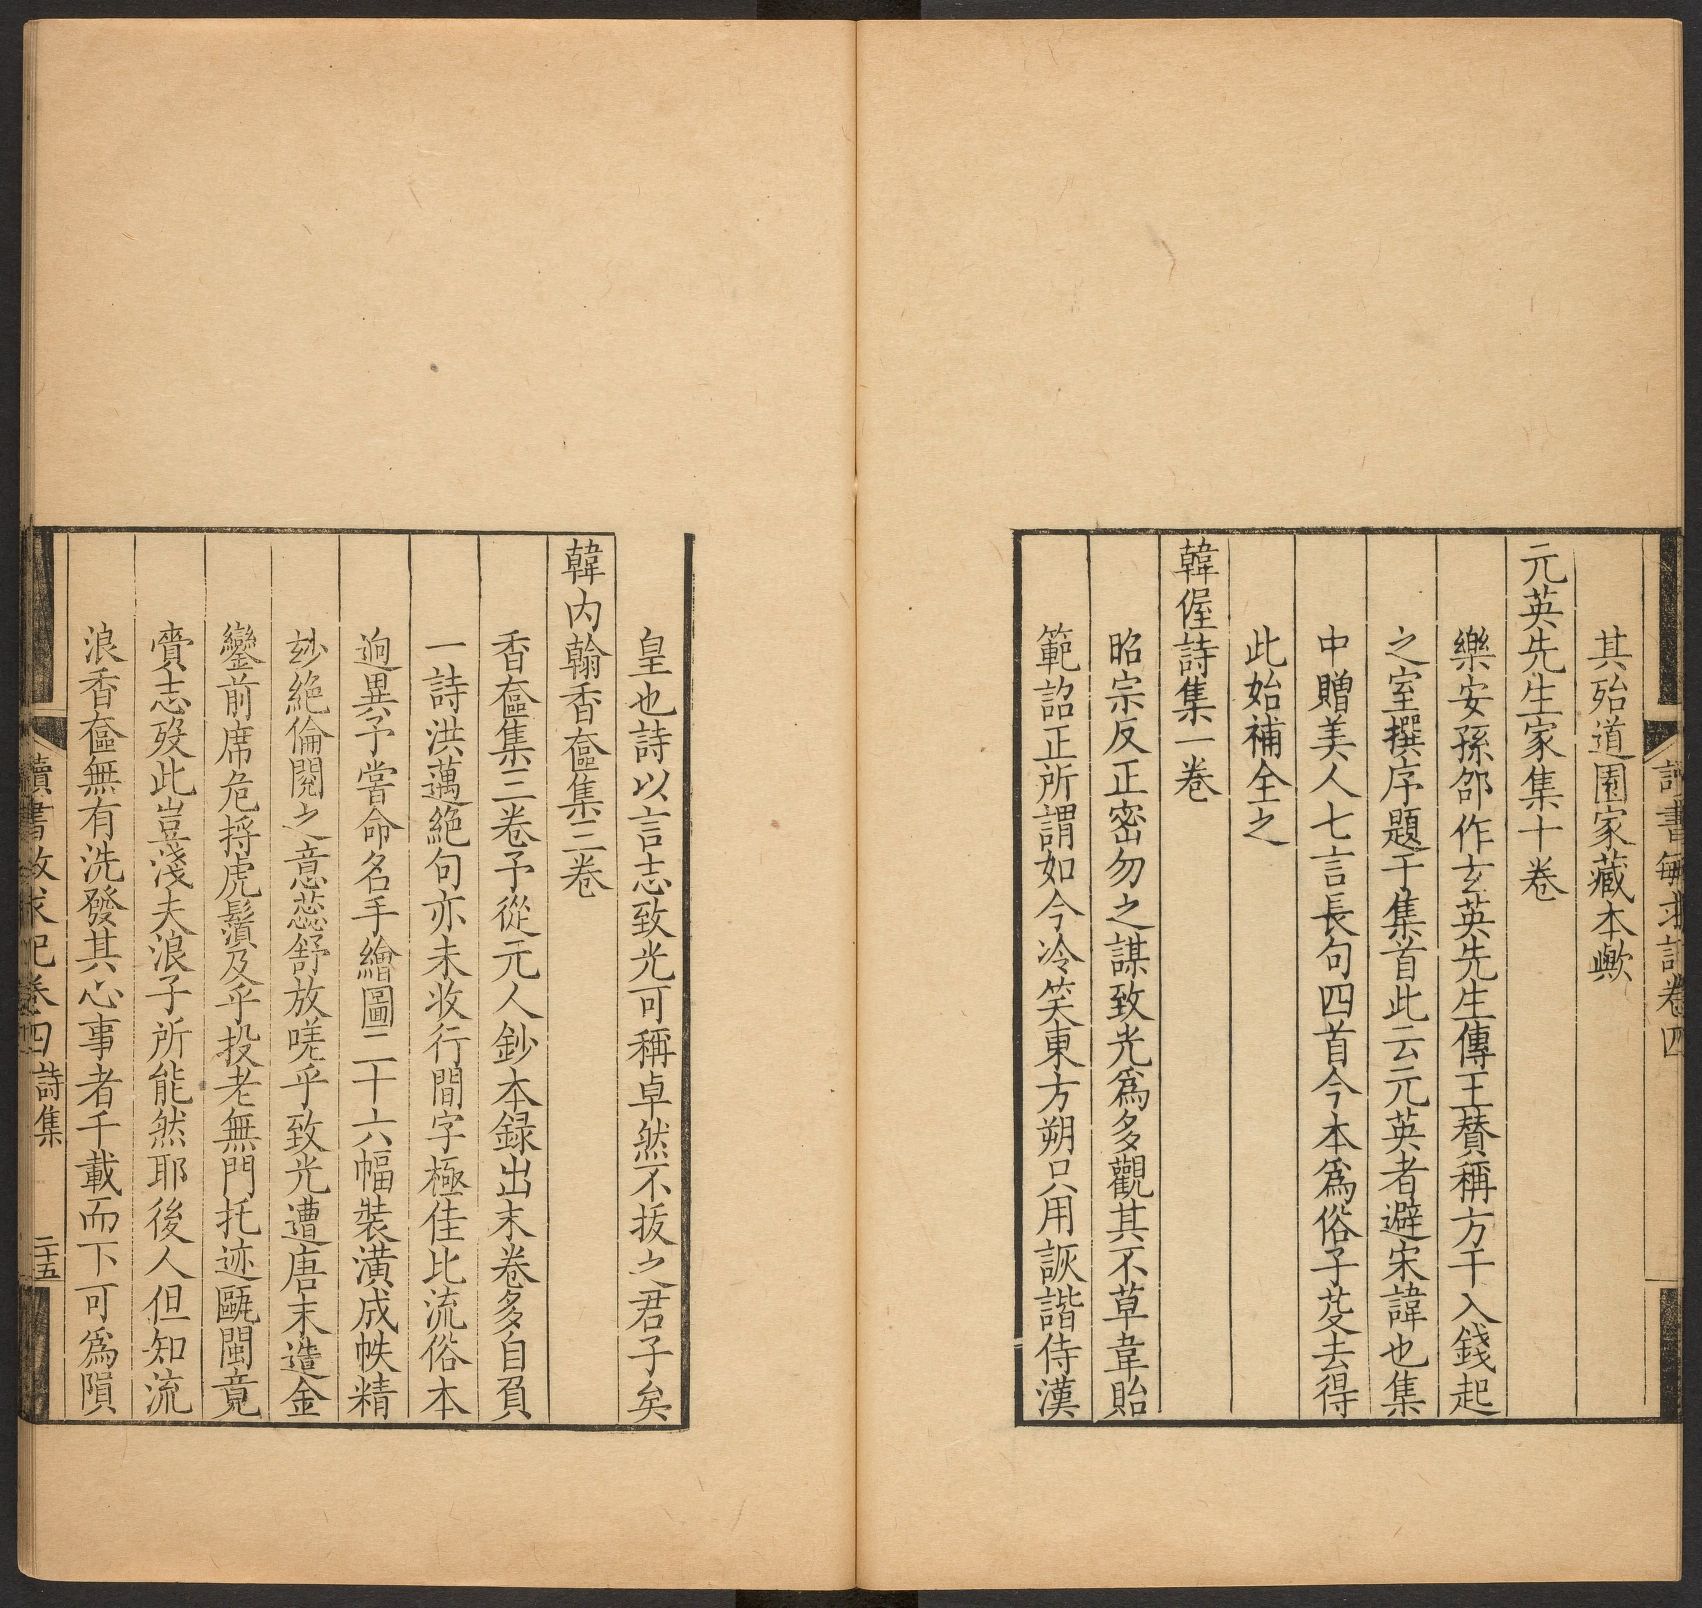 讀書敏求記卷四
其殆道園家藏本歟
元英先生家集十卷
樂安孫郃作玄英先生傳王賛稱方干入錢起
之室撰序題于集首此云元英者避宋諱也集
中贈美人七言長句四首今本爲俗子芟去得
此始補全之
韓偓詩集一卷
昭宗反正密勿之謀致光爲多觀其不草韋貽
範詔正所謂如今冷笑東方朔只用詼諧侍漢
皇也詩以言志致光可稱卓然不拔之君子矣
韓内翰香奩集三卷
香奩集三卷予從元人鈔本録出末卷多自負
一詩洪邁絶句亦未收行間字極佳比流俗本
逈異予嘗命名手繪圖二十六幅裝潢成帙精
玅絶倫閱之意蕊舒放嗟乎致光遭唐末造金
鑾前席危捋虎鬚及乎投老無門托迹甌閩竟
賫志歿此豈淺夫浪子所能然耶後人但知流
浪香奩無有洗發其心事者千載而下可爲隕
讀書敏求記卷四 詩集 二十五